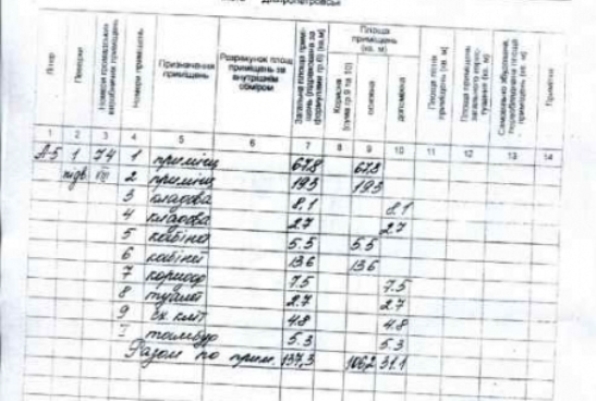 Дніпропетровськ
Літер
Поверхи
Номери приміщень
Призначення приміщень
Розрахунок площ приміщень за внутрішнім обміром
Загальна площа
Площа приміщень (кв. м)
Корисна (сума гр.9 та 10)
основна
допоміжна
Примітки
1 2 3 4 5 6 7 8 9 10 11 12 13 14
А-5 1 74 1 приміщ 67.8 67.8
підв 2 приміщ 19.3 19.3
3 кладова 8.1 8.1
4 кладова 2.7 2.7
5 кабінет 5.5 5.5
6 кабінет 13.6 13.6
7 коридор 7.5 7.5
8 туалет 2.7 2.7
9 сх кліт 4.8 4.8
I тамбур 5.3 5.3
Разом по прим. 137,3 106,2 31.1